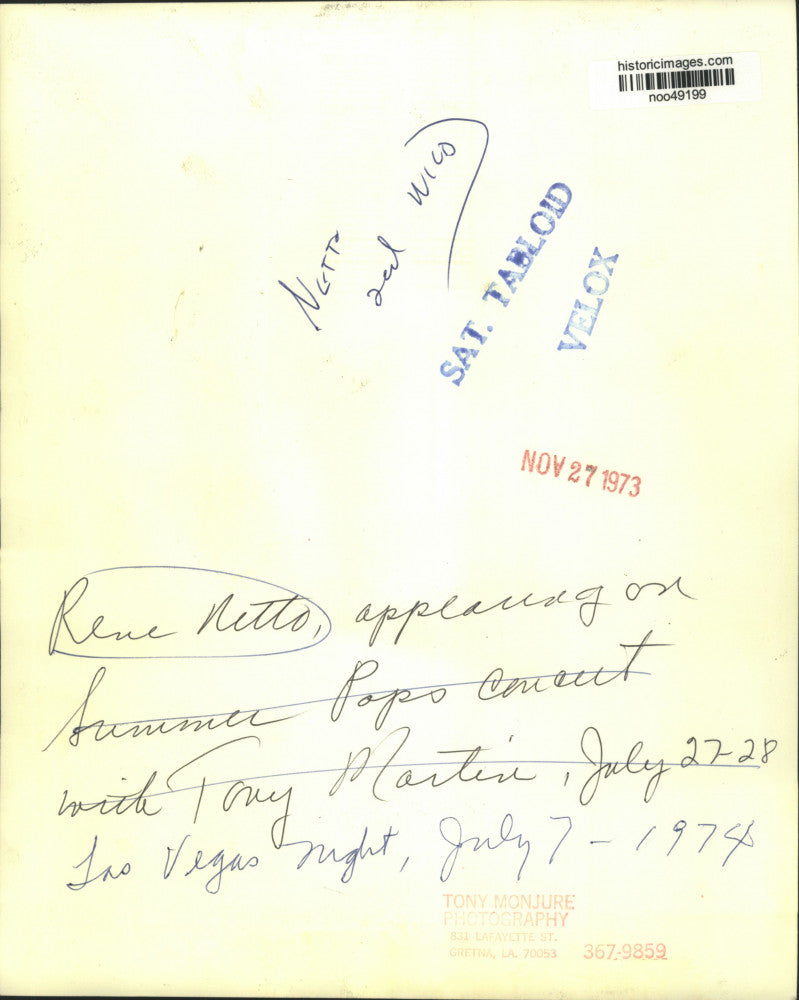 historicimages.com
noo49199
Netto
and Wico
SAT. TABLOID
VELOX
NOV 27 1973
Rene Netto, appearing on
Summer Pops Concert
with Tony Martin, July 27-28
Las Vegas Night, July 7 - 1974
TONY MONJURE
PHOTOGRAPHY
831 LAFAYETTE ST.
GRETNA, LA. 70053 367-9859